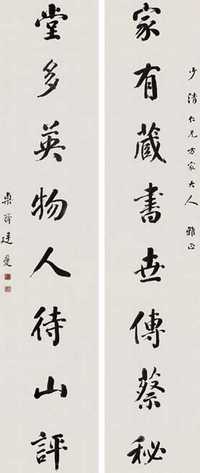 少清仁兄方家大人雅正
家有藏書世傳蔡秘
堂多英物人待山評